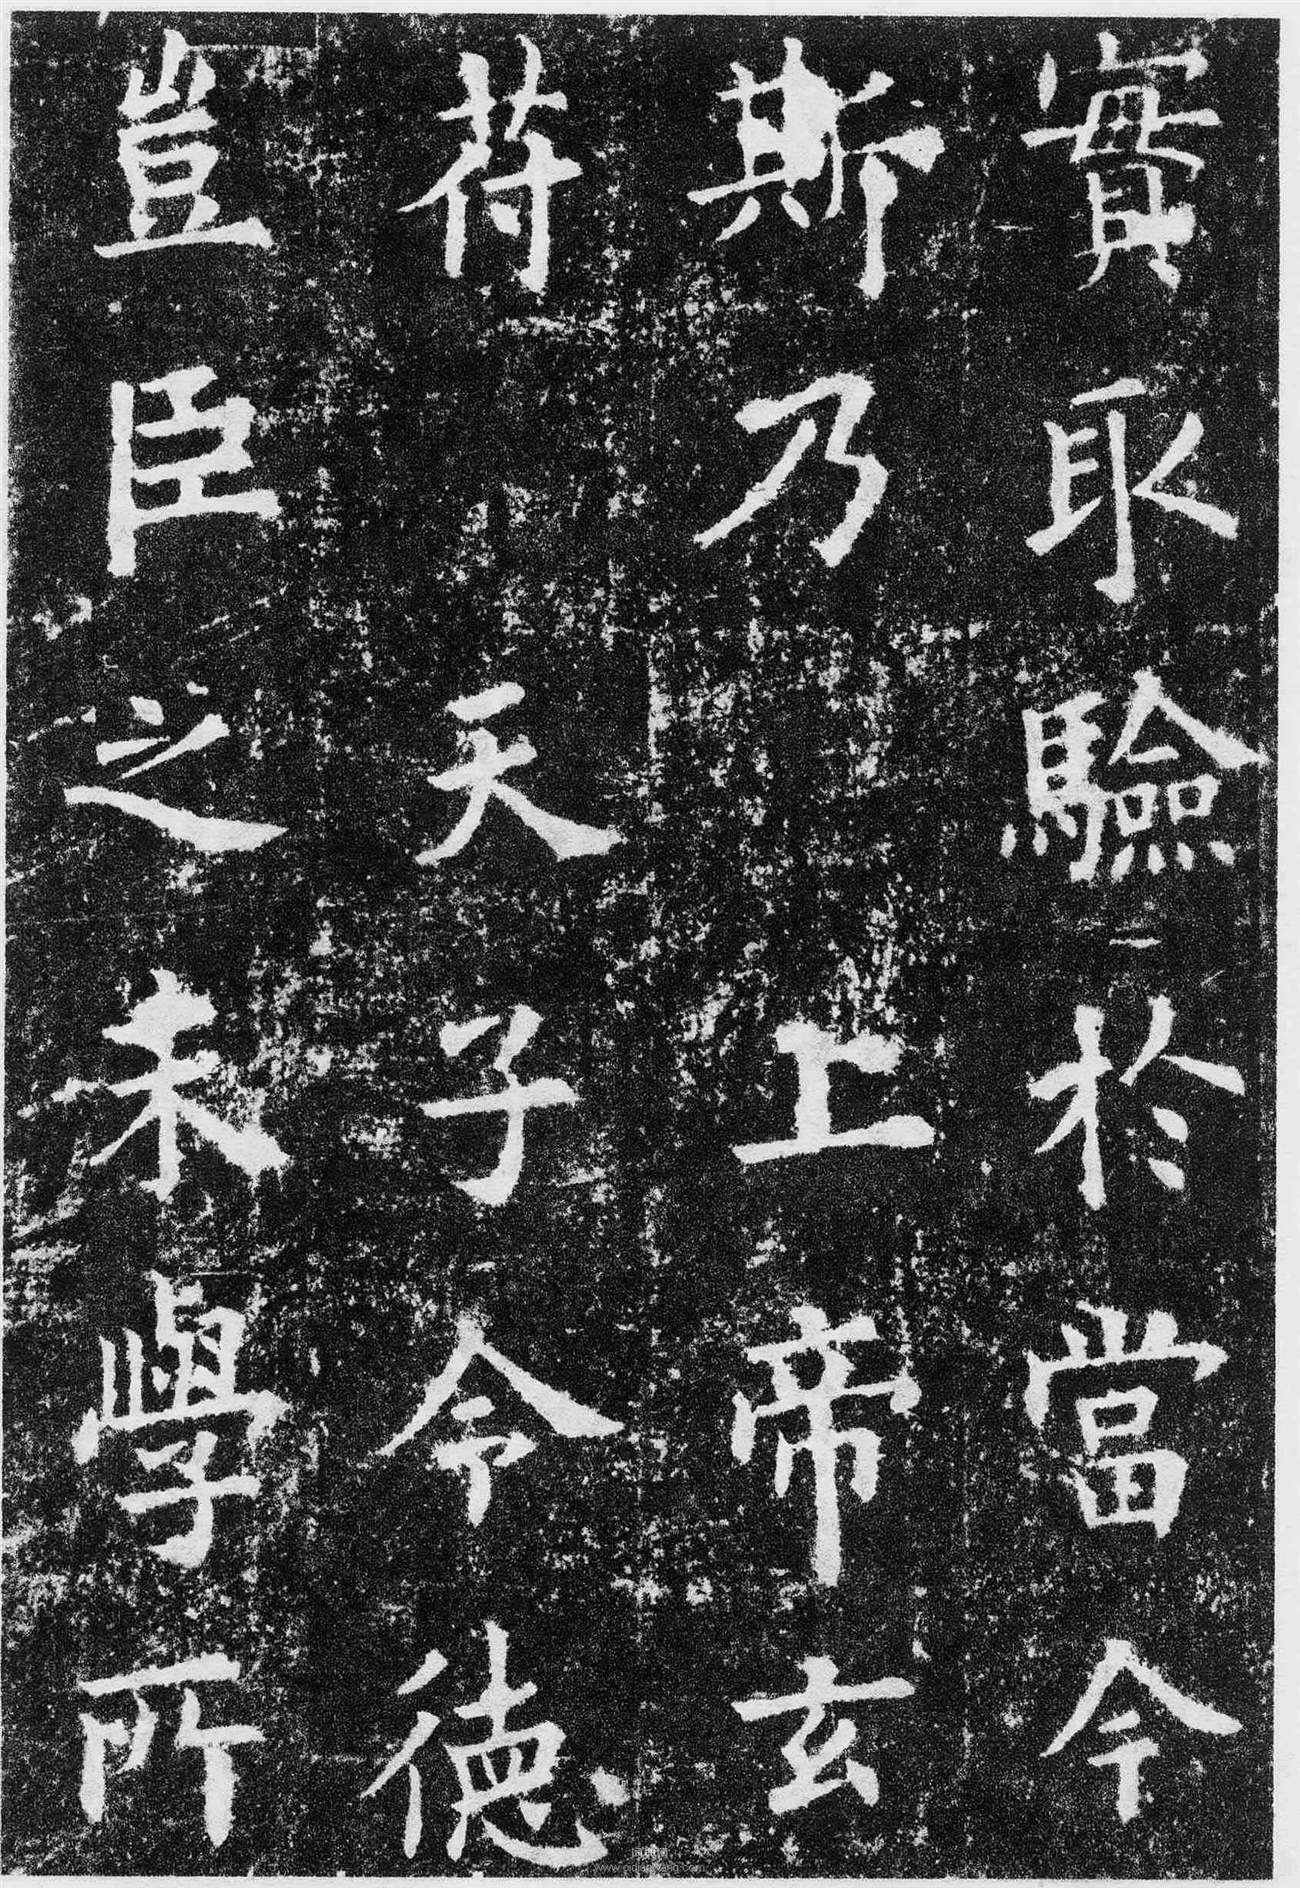 實取驗於當今
斯乃上帝玄
符天子令德
豈臣之末學所